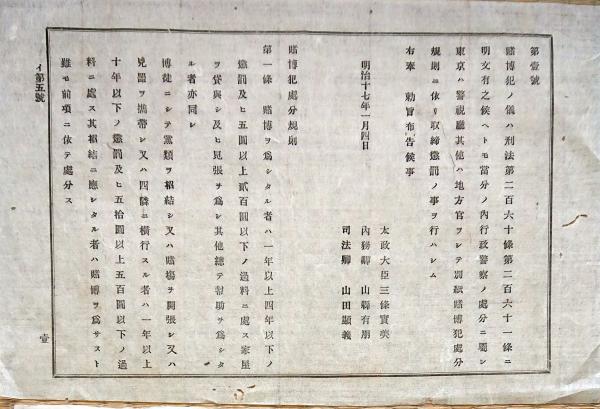 第壹號
賭博犯ノ儀ハ刑法第二百六十條第二百六十一條ニ
明文有之候ヘトモ當分ノ內行政警察ノ處分ニ屬シ
東京ハ警視廳其他ハ地方官ヲシテ別紙賭博犯處分
規則ニ依リ取締懲罰ノ事ヲ行ハシム
右奉 勅旨布告候事
明治十七年一月四日
太政大臣三條實美
內務卿 山縣有朋
司法卿 山田顯義
賭博犯處分規則
第一條 賭博ヲ爲シタル者ハ一年以上四年以下ノ
懲罰及ヒ五圓以上貳百圓以下ノ過料ニ處ス家屋
ヲ貸與シ及ヒ見張ヲ爲シ其他總テ幇助ヲ爲シタ
ル者亦同シ
博徒ニシテ黨類ヲ招結シ又ハ賭場ヲ開張シ又ハ
兇器ヲ携帶シ又ハ四隣ニ橫行スル者ハ一年以上
十年以下ノ懲罰及ヒ五拾圓以上五百圓以下ノ過
料ニ處ス其招結ニ應シタル者ハ賭博ヲ爲サスト
雖モ前項ニ依テ處分ス
イ第五號
壹